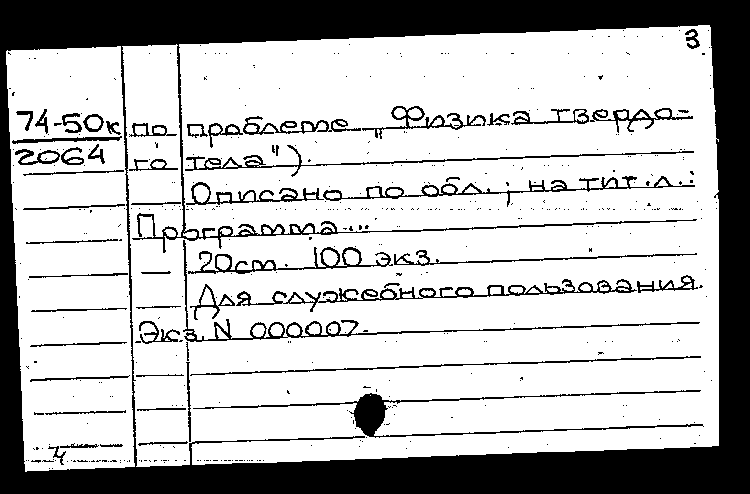 3
74-50к по проблеме „Физика твердо-
2064 го тела").
Описано по обл.; на тит.л.:
Программа...
— 20см. 100 экз.
Для служебного пользования.
Экз. N 000007.